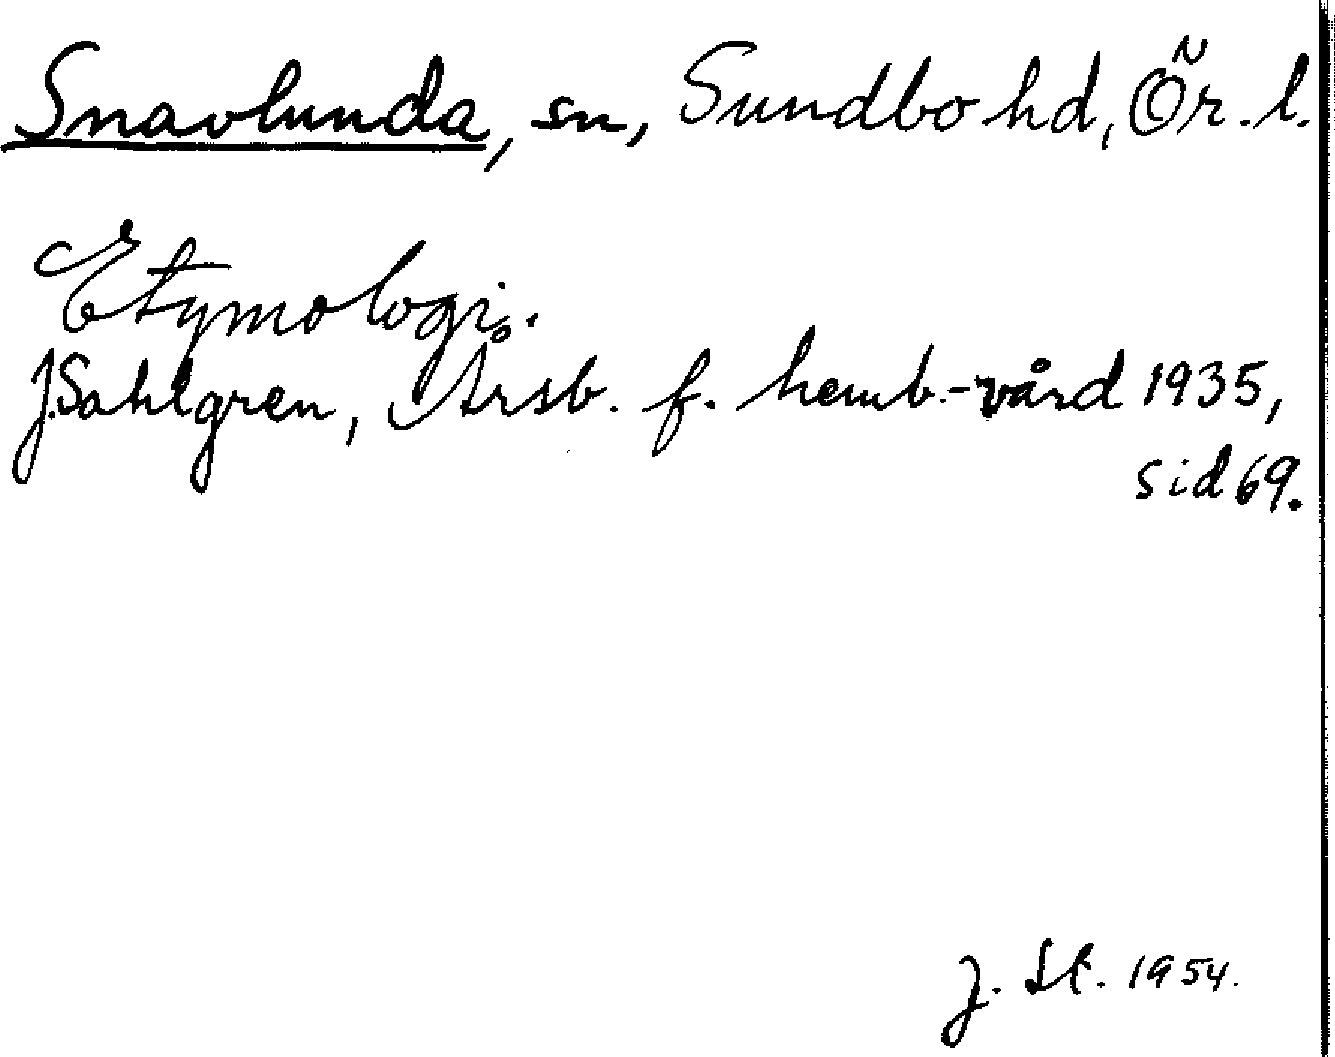 Snavlunda, sn, Sundbo hd, Ör. l.
Etymologi.
J. Sahlgren, Årsb. f. hemb.-vård 1935,
sid 69.
J. St. 1954.